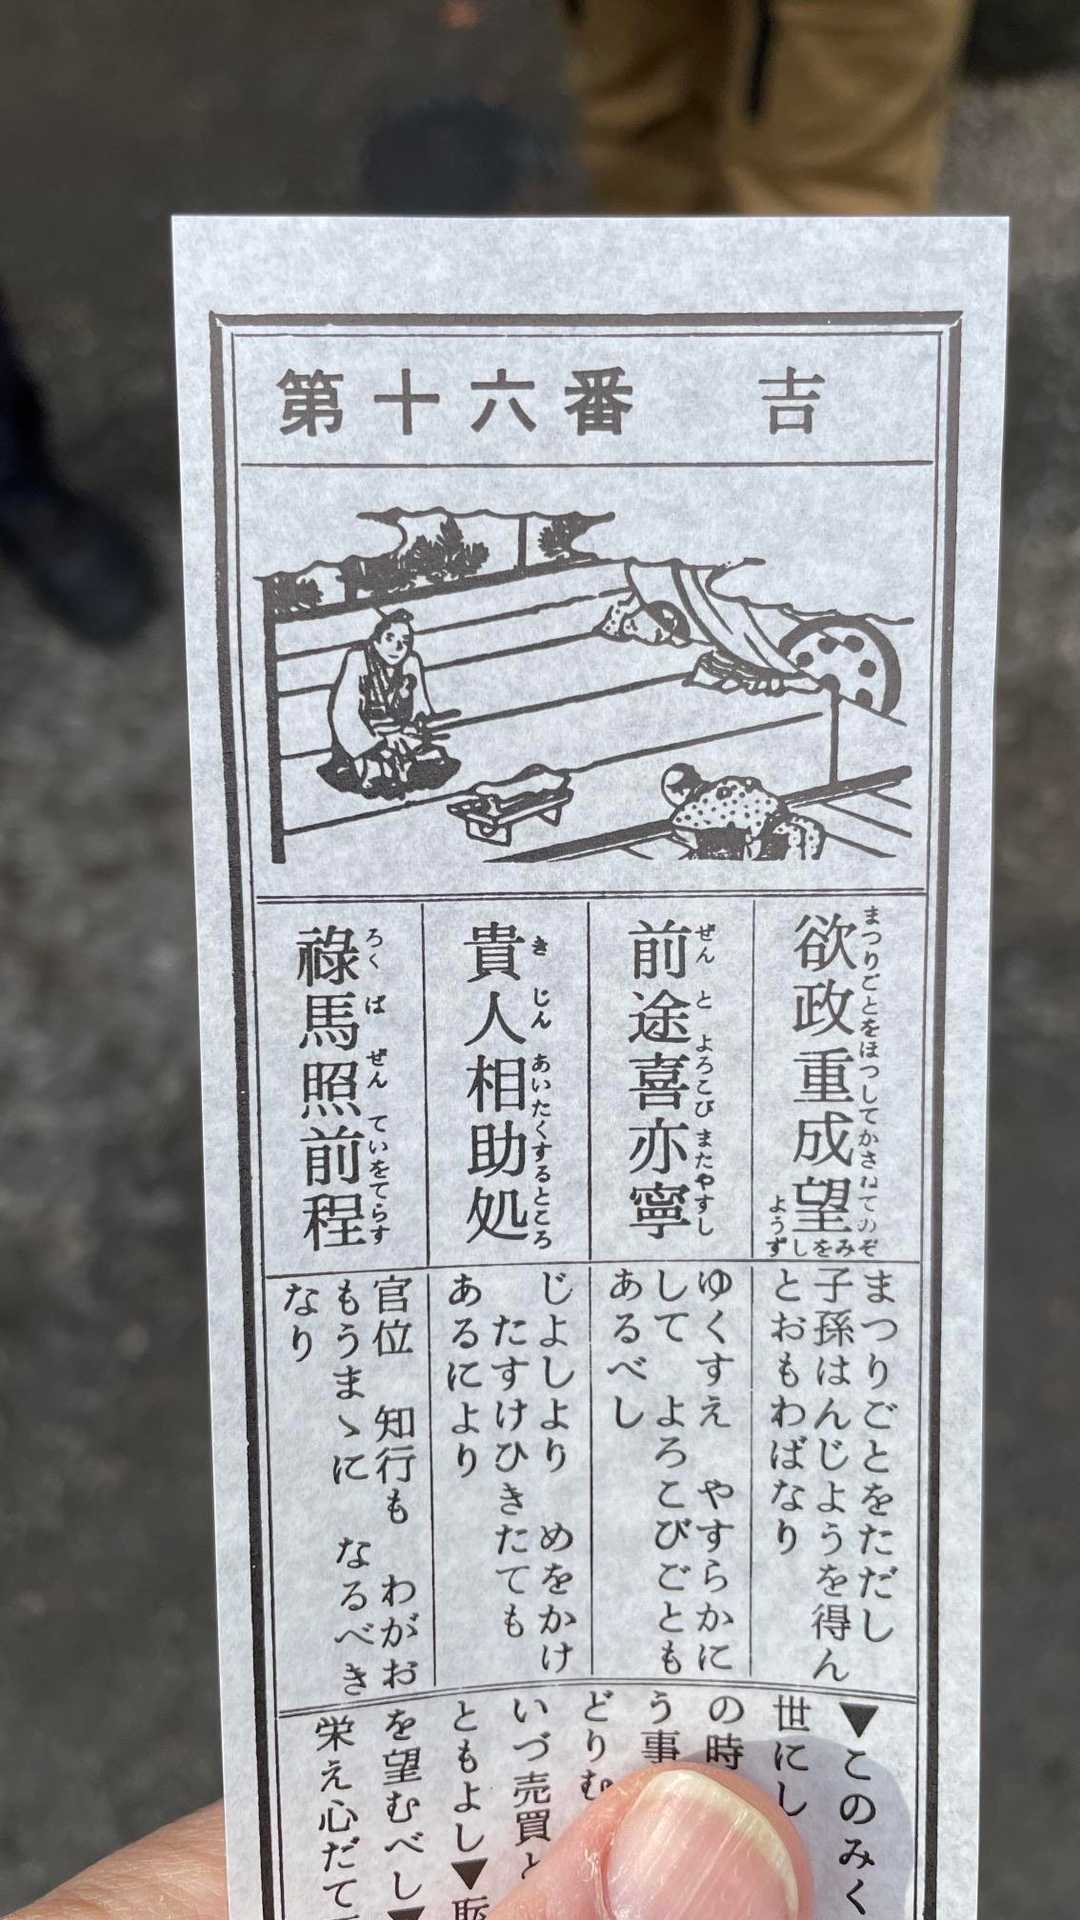 第十六番　吉
欲政重成望
まつりごとをほつしてかさねてのぞ
みをしようず
前途喜亦寧
ぜんとよろこびまたやすし
貴人相助処
きじんあいたくするところ
禄馬照前程
ろくばぜんていをてらす
まつりごとをただし
子孫はんじようを得ん
とおもわばなり
ゆくすえ　やすらかに
して　よろこびごとも
あるべし
じよしより　めをかけ
たすけひきたても
あるにより
官位　知行も　わがお
もうまゝに　なるべき
なり
▼このみく
世にし
の時
う事
どりむ
いづ売買と
ともよし▼
を望むべし▼
栄え心だて